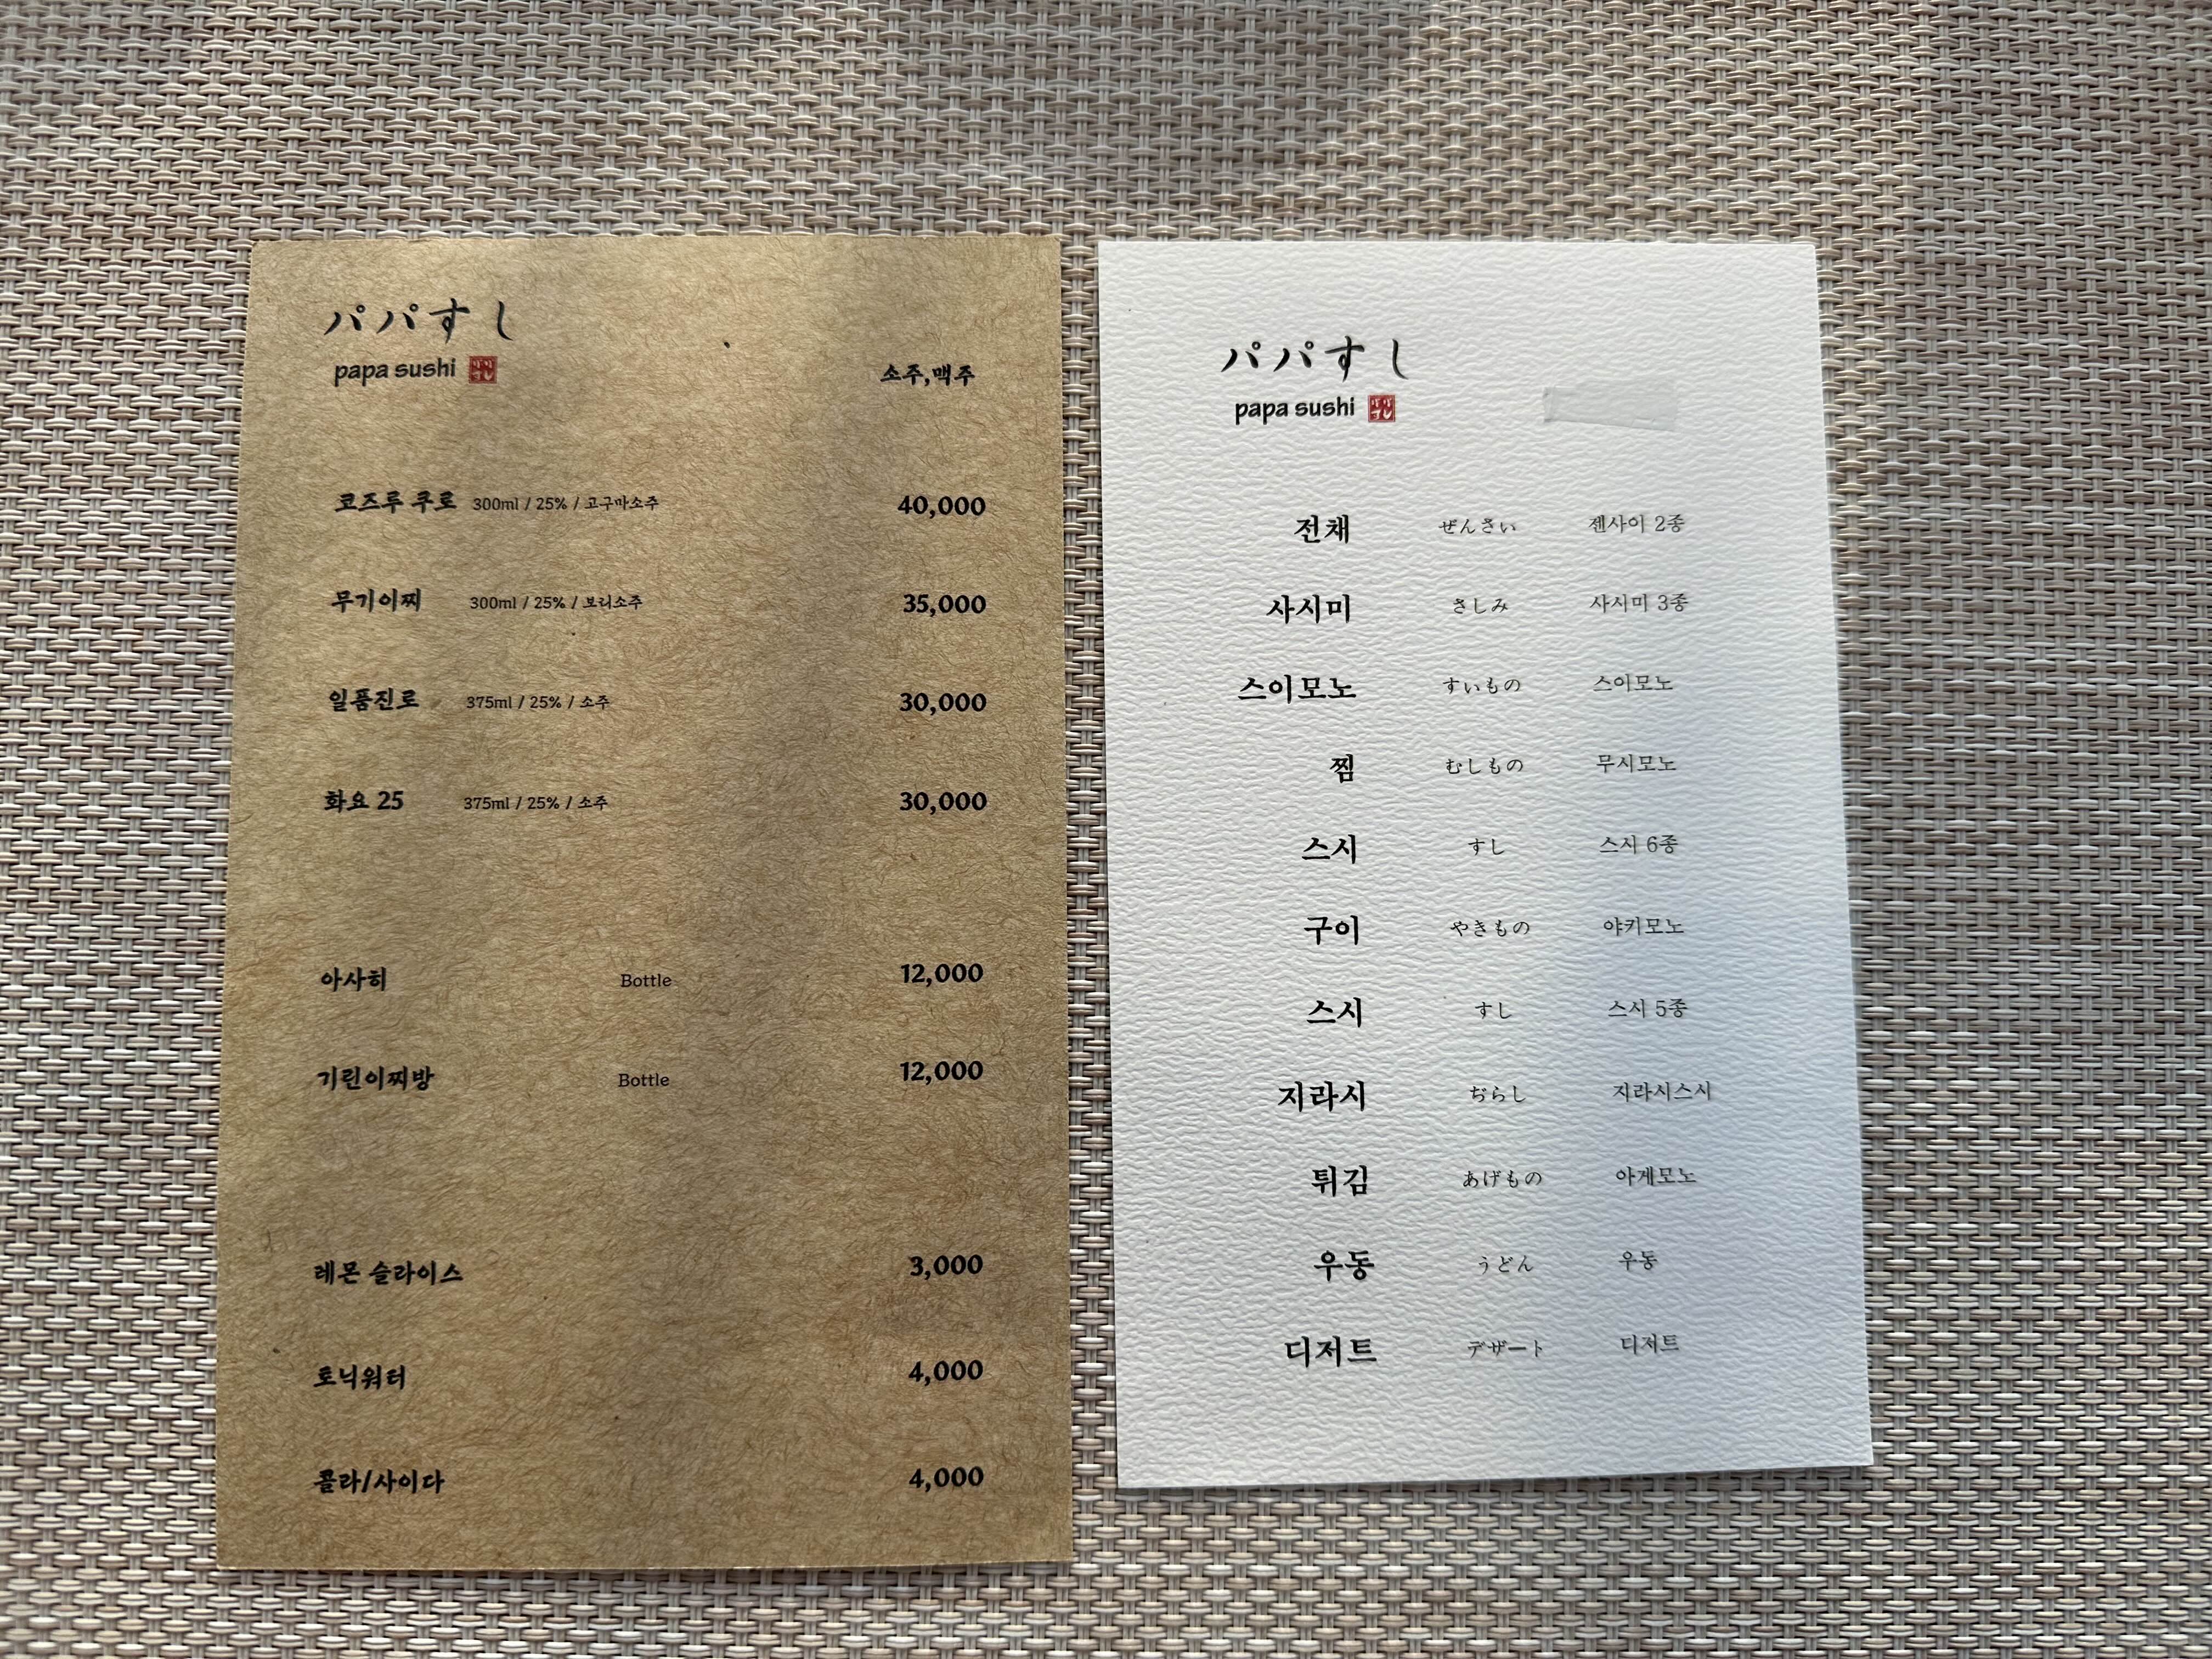 パパすし
papa sushi
소주,맥주
코즈루 쿠로 300ml / 25% / 고구마소주 40,000
무기이찌 300ml / 25% / 보리소주 35,000
일품진로 375ml / 25% / 소주 30,000
화요 25 375ml / 25% / 소주 30,000
아사히 Bottle 12,000
기린이찌방 Bottle 12,000
레몬 슬라이스 3,000
토닉워터 4,000
콜라/사이다 4,000
パパすし
papa sushi
전채 ぜんさい 젠사이 2종
사시미 さしみ 사시미 3종
스이모노 すいもの 스이모노
찜 むしもの 무시모노
스시 すし 스시 6종
구이 やきもの 야키모노
스시 すし 스시 5종
지라시 ぢらし 지라시스시
튀김 あげもの 아게모노
우동 うどん 우동
디저트 デザート 디저트